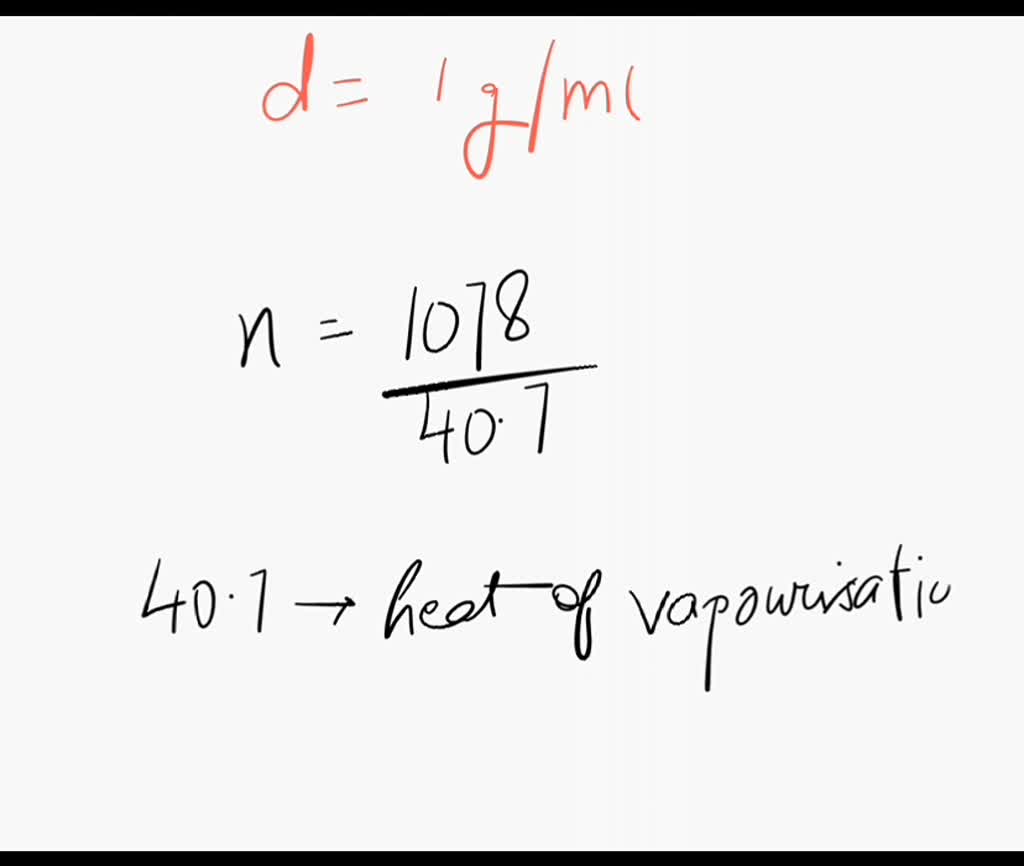 d = 1 g/ml
n = 1078
40.7
40.7 → heat of vapourisatio